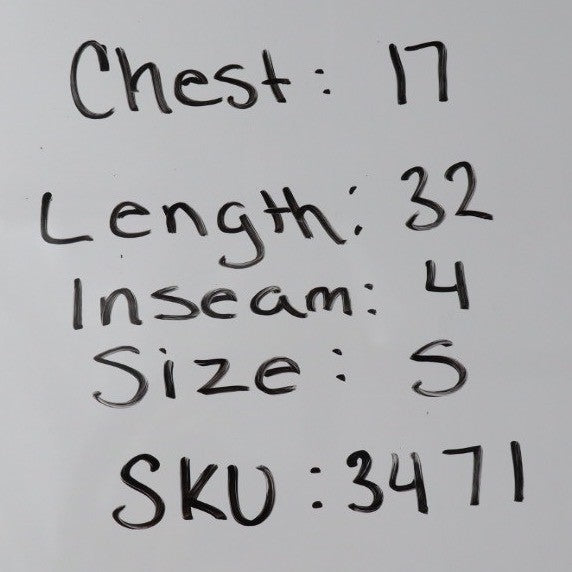 Chest: 17
Length: 32
Inseam: 4
Size: S
SKU: 3471